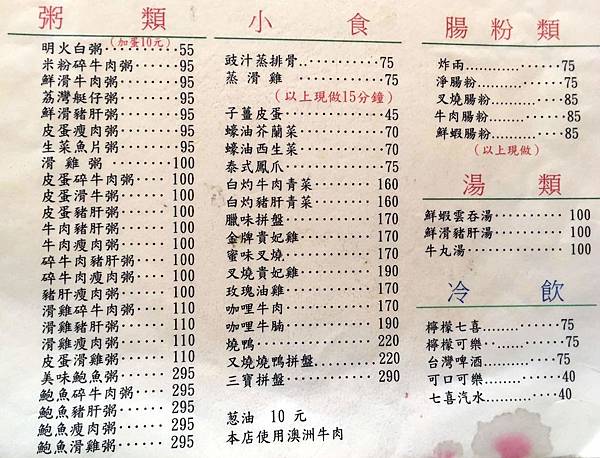 粥類
(加蛋10元)
明火白粥···········55
米粉碎牛肉粥······95
鮮滑牛肉粥········95
荔灣艇仔粥········95
鮮滑豬肝粥········95
皮蛋瘦肉粥········95
生菜魚片粥········95
滑雞粥··········100
皮蛋碎牛肉粥····100
皮蛋滑牛粥······100
皮蛋豬肝粥······100
牛肉豬肝粥······100
牛肉瘦肉粥······100
碎牛肉豬肝粥····100
碎牛肉瘦肉粥····100
豬肝瘦肉粥······100
滑雞碎牛肉粥····110
滑雞豬肝粥······110
滑雞瘦肉粥······110
皮蛋滑雞粥······110
美味鮑魚粥······295
鮑魚碎牛肉粥····295
鮑魚豬肝粥······295
鮑魚瘦肉粥······295
鮑魚滑雞粥······295
小食
豉汁蒸排骨··········75
蒸滑雞··········75
(以上現做15分鐘)
子薑皮蛋··········45
蠔油芥蘭菜········70
蠔油西生菜········70
泰式鳳爪··········75
白灼牛肉青菜····160
白灼豬肝青菜····160
臘味拼盤········170
金牌貴妃雞······170
蜜味叉燒········170
叉燒貴妃雞······190
玫瑰油雞········170
咖哩牛肉········170
咖哩牛腩········190
燒鴨············220
叉燒燒鴨拼盤.......220
三寶拼盤········290
蔥油 10 元
本店使用澳洲牛肉
腸粉類
炸兩...............75
淨腸粉............75
叉燒腸粉..........85
牛肉腸粉..........85
鮮蝦腸粉..........85
(以上現做)
湯類
鮮蝦雲吞湯········100
鮮滑豬肝湯········100
牛丸湯··········100
冷飲
檸檬七喜............75
檸檬可樂···········75
台灣啤酒............75
可口可樂............40
七喜汽水............40